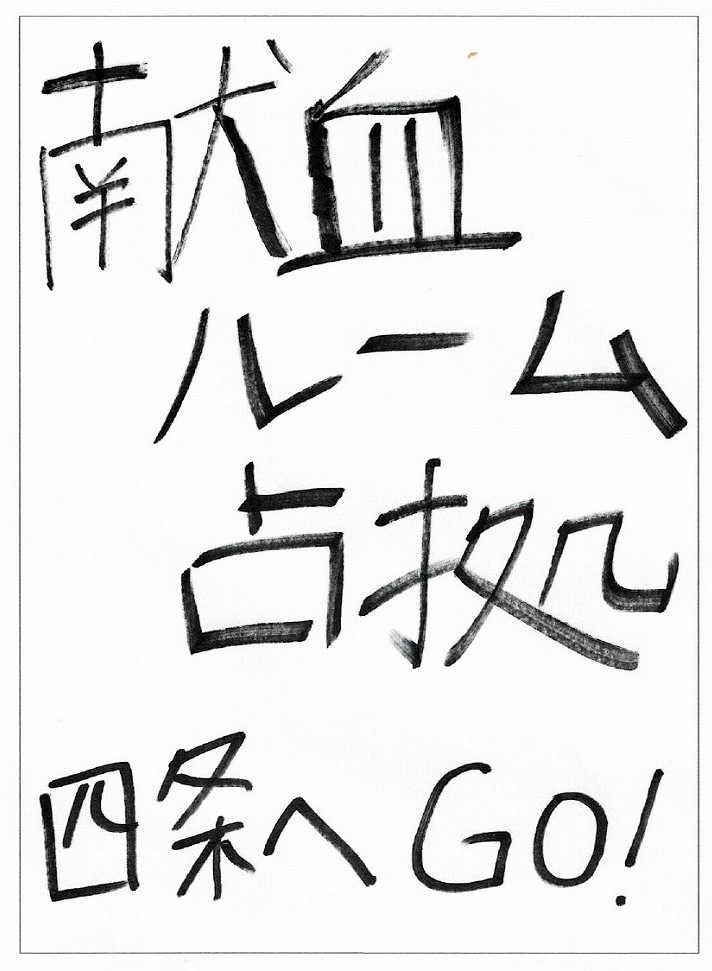 献血
ルーム
占拠
四条へGO!